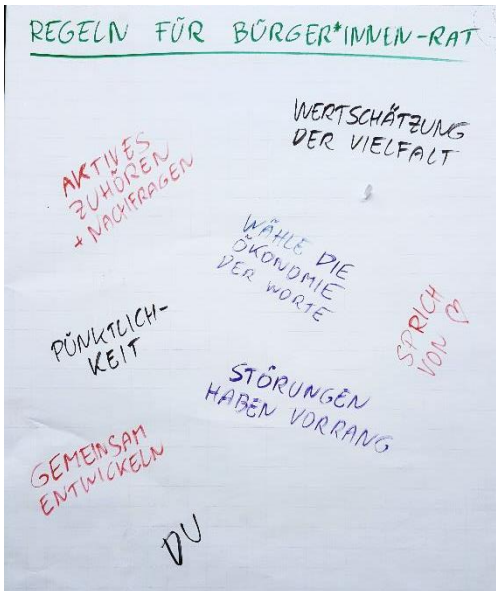 REGELN FÜR BÜRGER*INNEN-RAT
WERTSCHÄTZUNG
DER VIELFALT
AKTIVES
ZUHÖREN
+ NACHFRAGEN
WÄHLE DIE
ÖKONOMIE
DER WORTE
SPRICH
VON ♡
PÜNKTLICH-
KEIT
STÖRUNGEN
HABEN VORRANG
GEMEINSAM
ENTWICKELN
DU